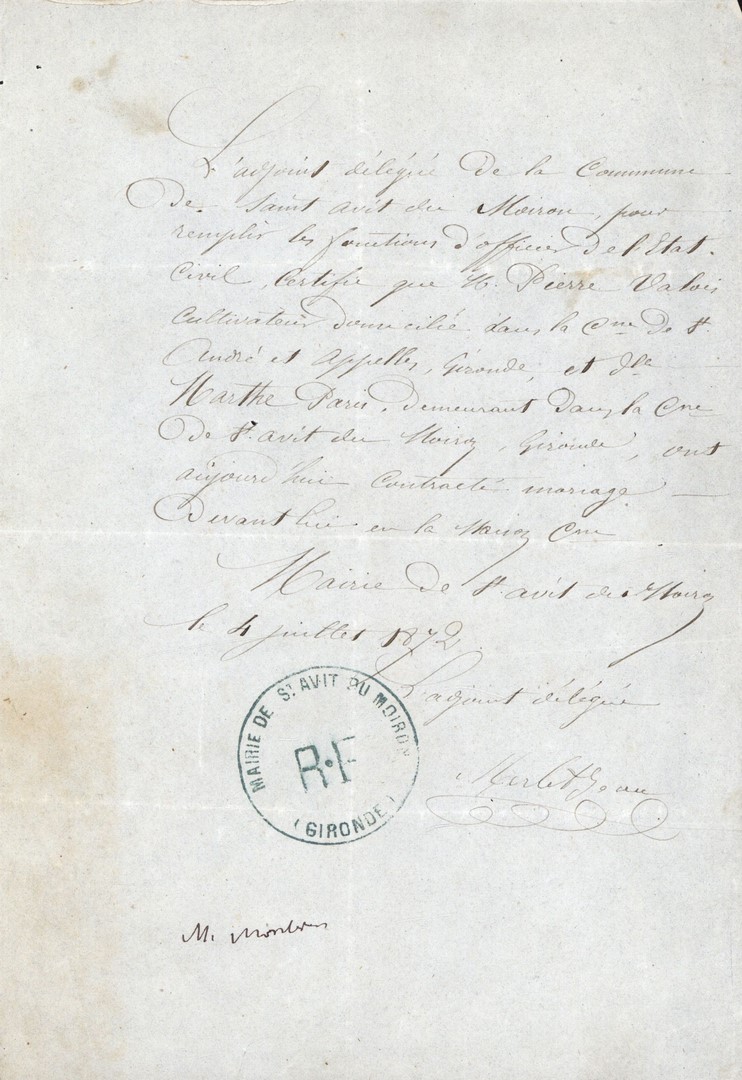 L'adjoint délégué de la Commune
de Saint avit du Moiron, pour
remplir les fonctions d'officier de l'Etat-
Civil, Certifie que M. Pierre Valois
Cultivateur domicilié dans la Cne de St.
André et Appelles, Gironde, et Dlle
Marthe Paris, demeurant dans la Cne
de St. avit du Moiron, Gironde, ont
aujourd'hui Contracté mariage —
Devant lui en la Maison Cne
Mairie de St. avit du Moiron
le 4 juillet 1872.
L'adjoint délégué
MAIRIE DE ST AVIT DU MOIRON
R.F
(GIRONDE)
Merlet Jean
M.